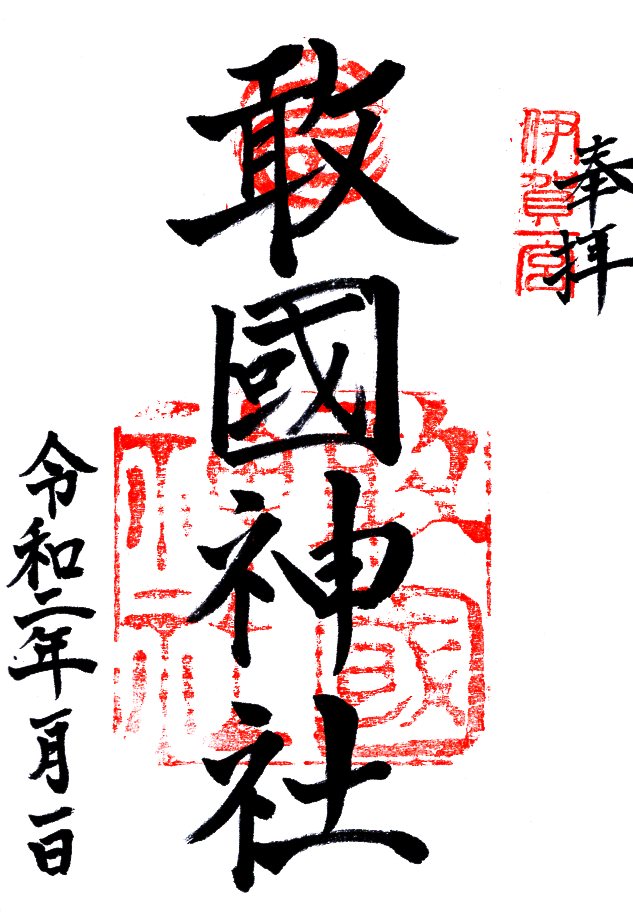 奉拝
伊賀一宮
敢國神社
令和二年一月一日